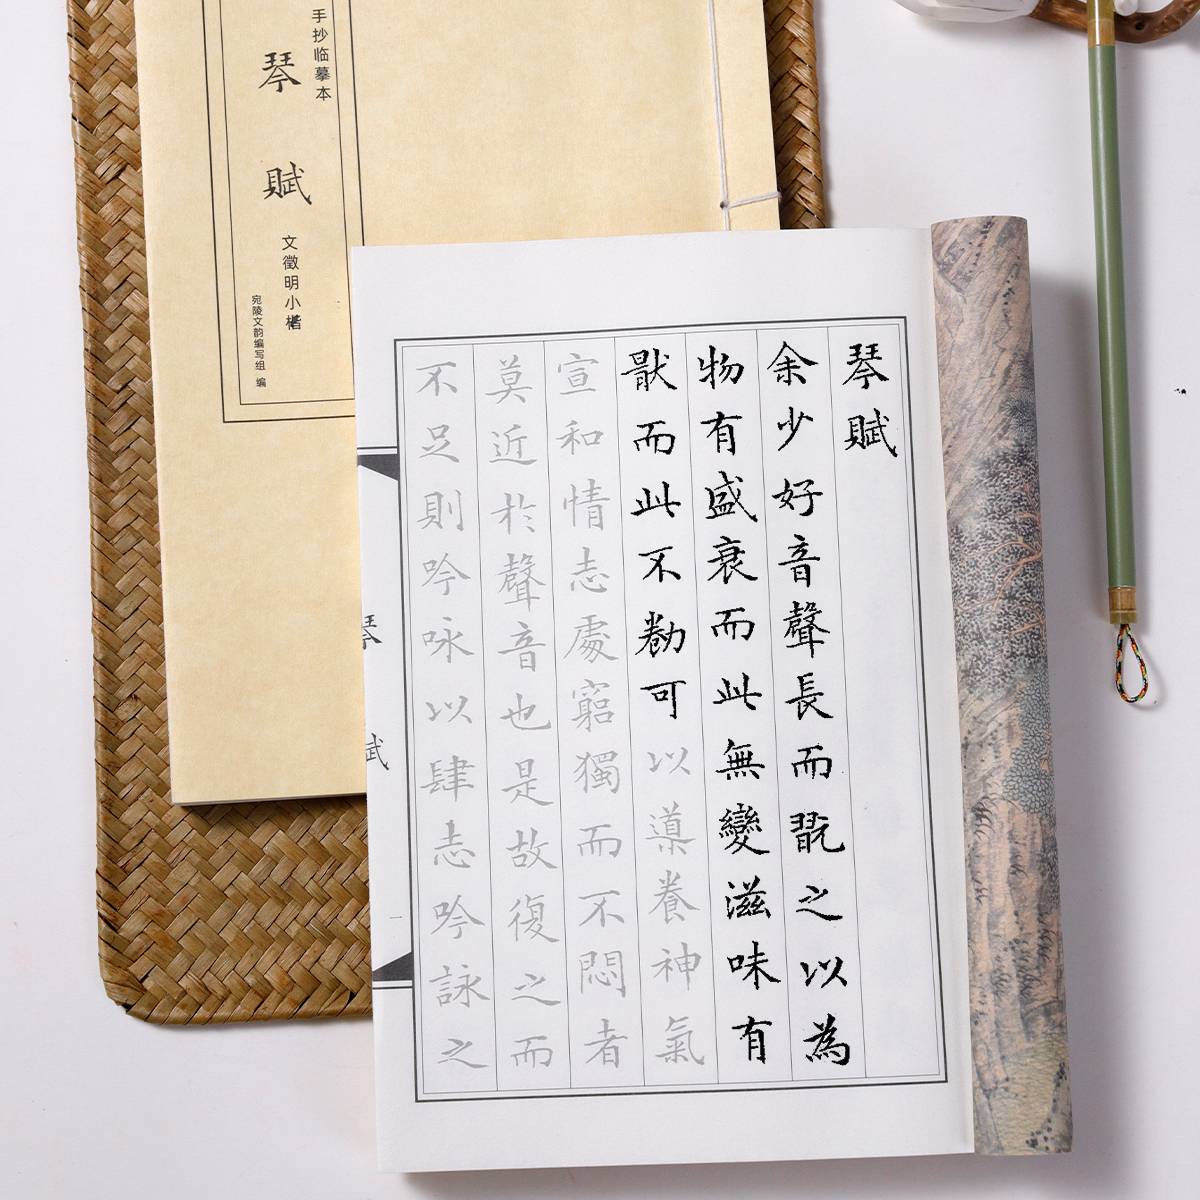 手抄临摹本
琴賦
文徵明小楷
宛陵文韵编写组 编
琴賦
余少好音聲長而翫之以為
物有盛衰而此無變滋味有
猒而此不勌可以導養神氣
宣和情志處窮獨而不悶者
莫近於聲音也是故復之而
不足則吟咏以肆志吟詠之
琴賦
一